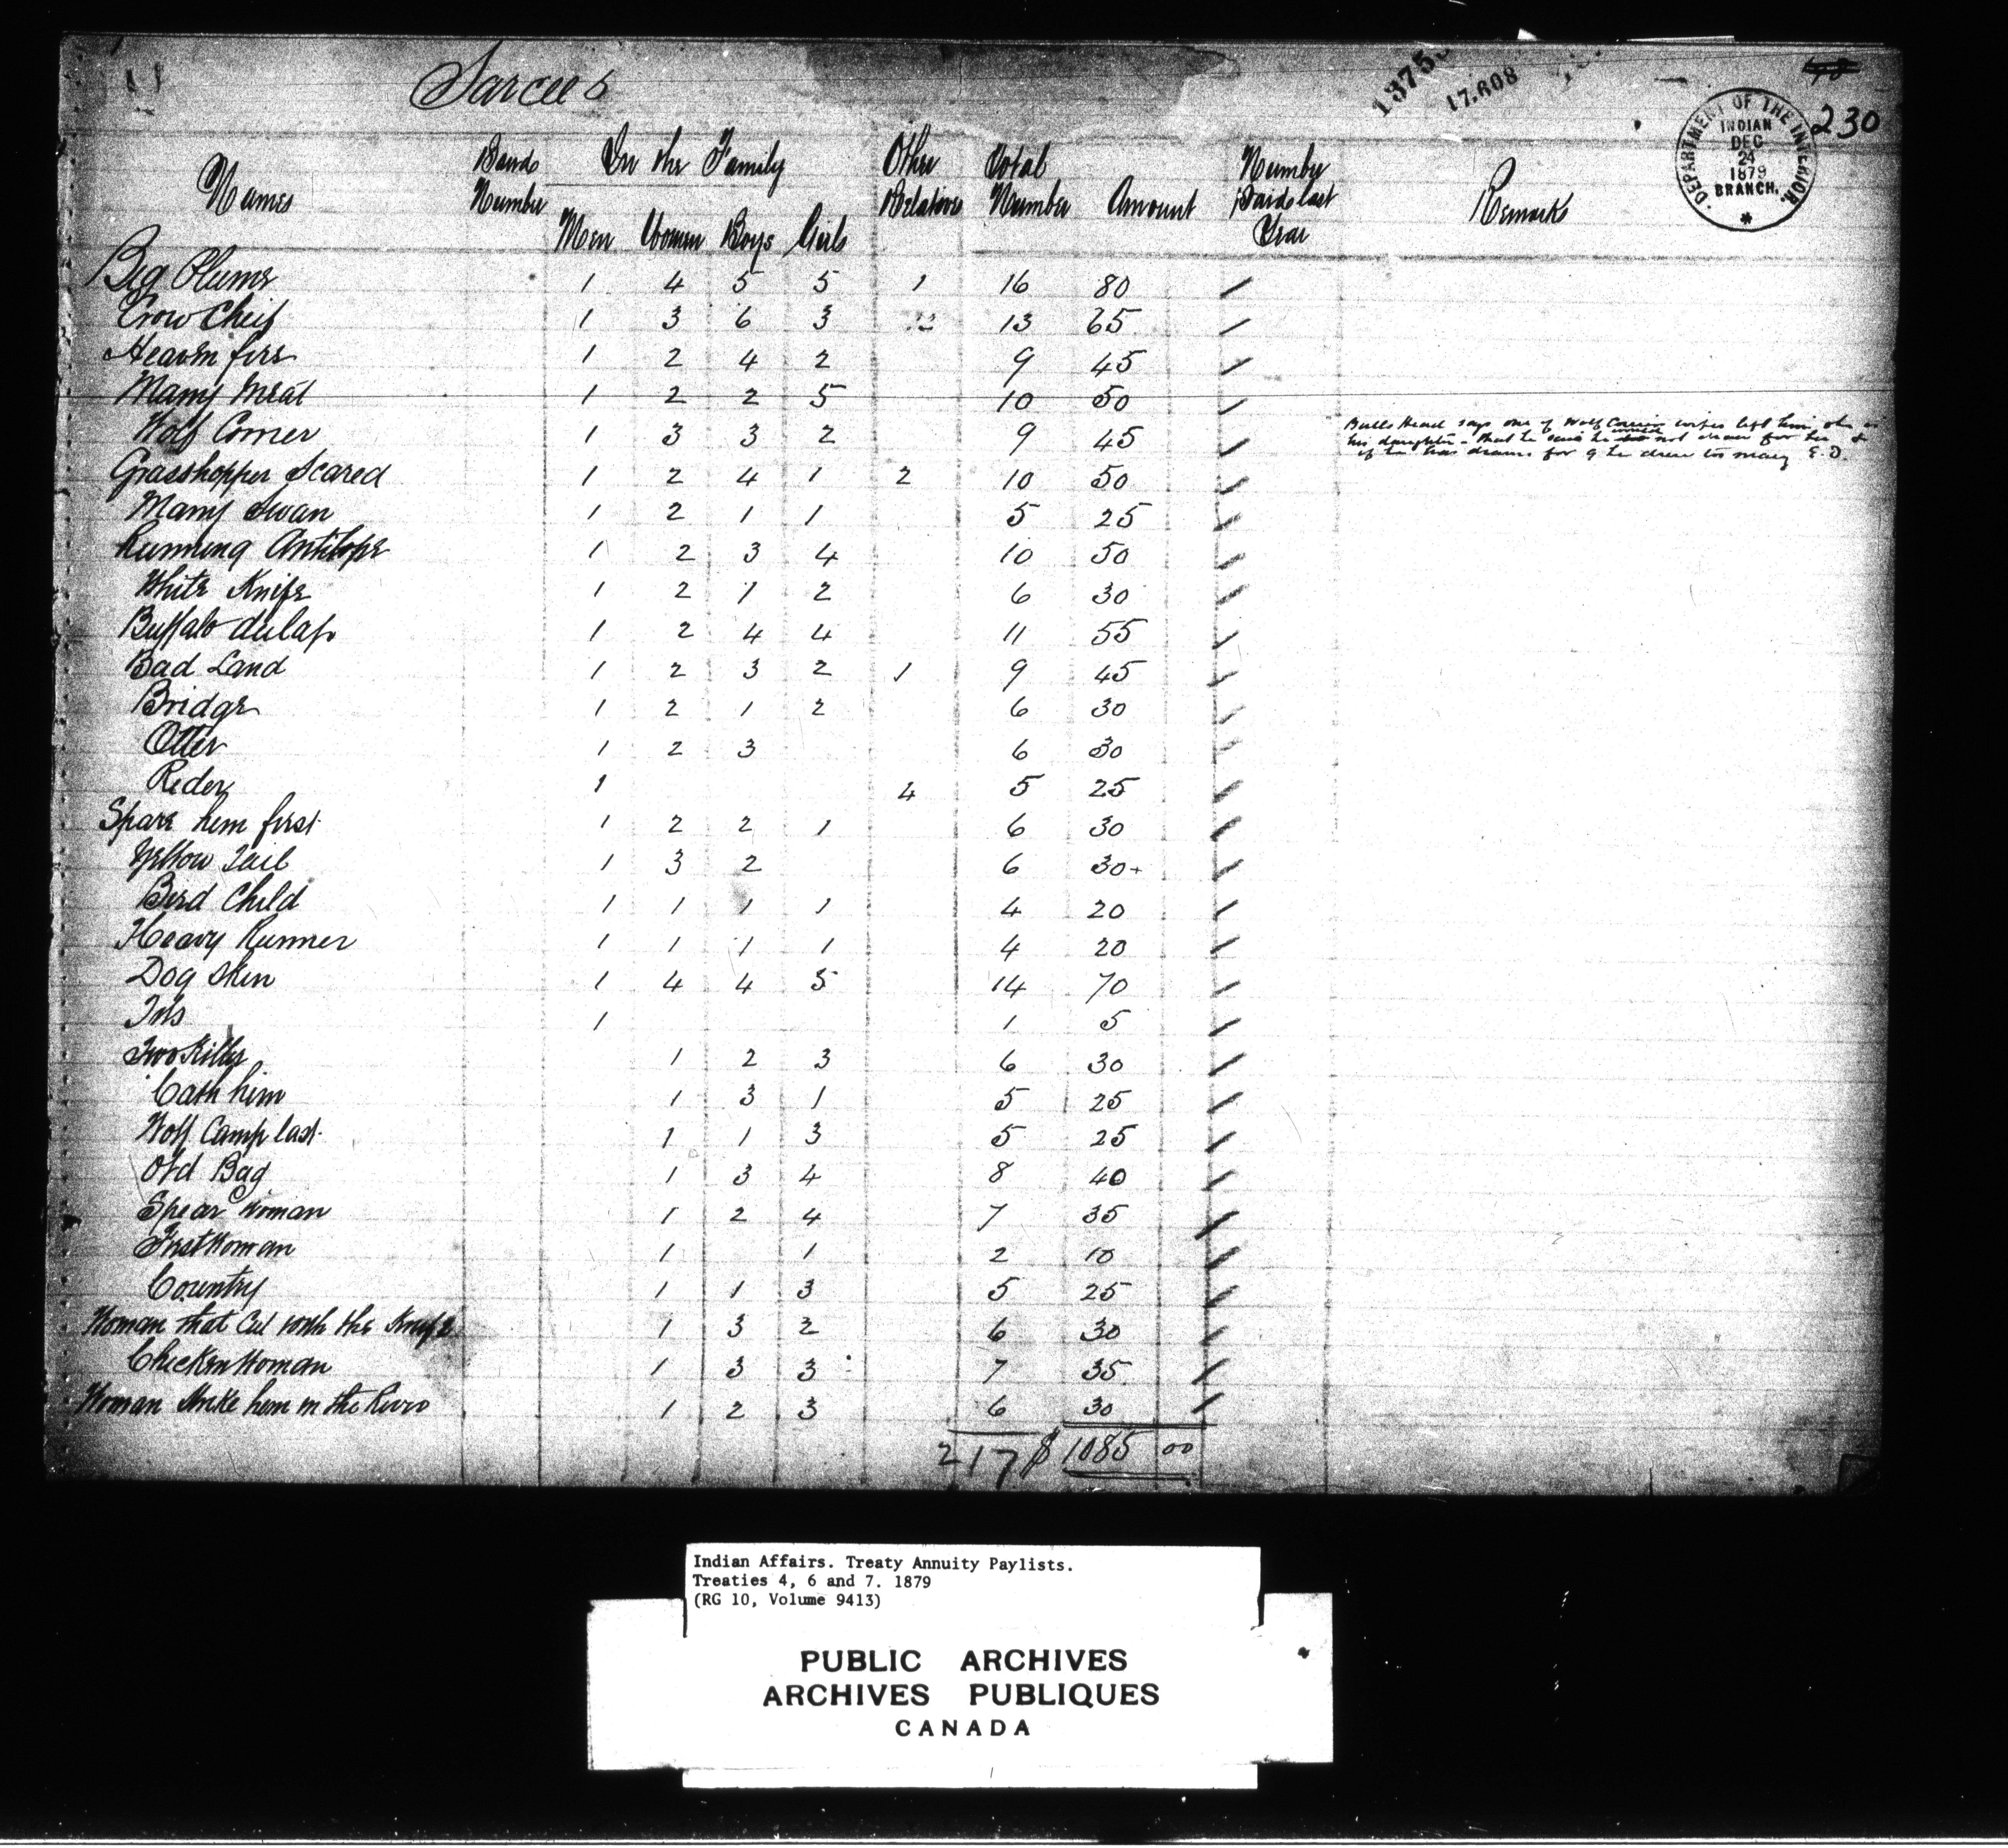 Sarcees
13753
17.608
230
DEPARTMENT OF THE INTERIOR.
INDIAN
DEC
24
1879
BRANCH.
Names Bands Number In the Family Men Women Boys Girls Other Relatives Total Number Amount Number Paid last Year Remarks
Big Plume 1 4 5 5 1 16 80
Crow Cheif 1 3 6 3 13 65
Heaven fire 1 2 4 2 9 45
Many Meat 1 2 2 5 10 50
Wolf Corner 1 3 3 2 9 45
Bulls Head says one of Wolf Corners wifes left him, she is
his daughter - that he said he would not draw for her &
if he has drawn for 9 he drew too many E.D.
Grasshopper Scared 1 2 4 1 2 10 50
Many Swan 1 2 1 1 5 25
Running Antilope 1 2 3 4 10 50
White Knife 1 2 1 2 6 30
Buffalo dulap 1 2 4 4 11 55
Bad Land 1 2 3 2 1 9 45
Bridge 1 2 1 2 6 30
Otter 1 2 3 6 30
Rider 1 4 5 25
Spare him first 1 2 2 1 6 30
Yellow Tail 1 3 2 6 30+
Berd Child 1 1 1 1 4 20
Heavy Runner 1 1 1 1 4 20
Dog Skin 1 4 4 5 14 70
1 1 5
Two Kills 1 2 3 6 30
Cath him 1 3 1 5 25
Wolf Camp last 1 1 3 5 25
Old Bag 1 3 4 8 40
Spear Woman 1 2 4 7 35
First Woman 1 1 2 10
Country 1 1 3 5 25
Woman that Cut with the Knife 1 3 2 6 30
Chicken Woman 1 3 3 7 35
Woman Strike him in the River 1 2 3 6 30
217 $1085 00
Indian Affairs. Treaty Annuity Paylists.
Treaties 4, 6 and 7. 1879
(RG 10, Volume 9413)
PUBLIC ARCHIVES
ARCHIVES PUBLIQUES
CANADA